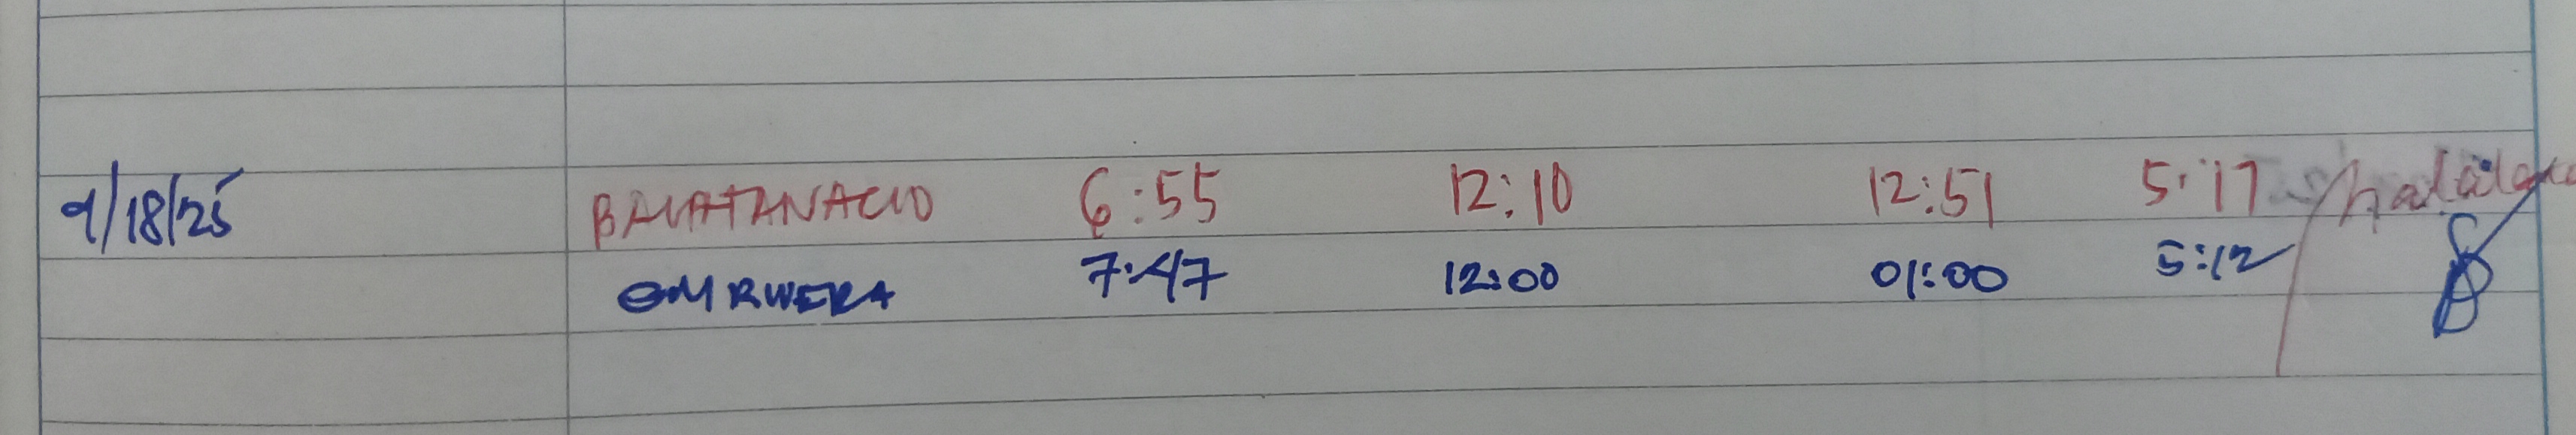 9/18/25 6:55 12:10 12:51 5:17
7:47 12:00 01:00 5:12